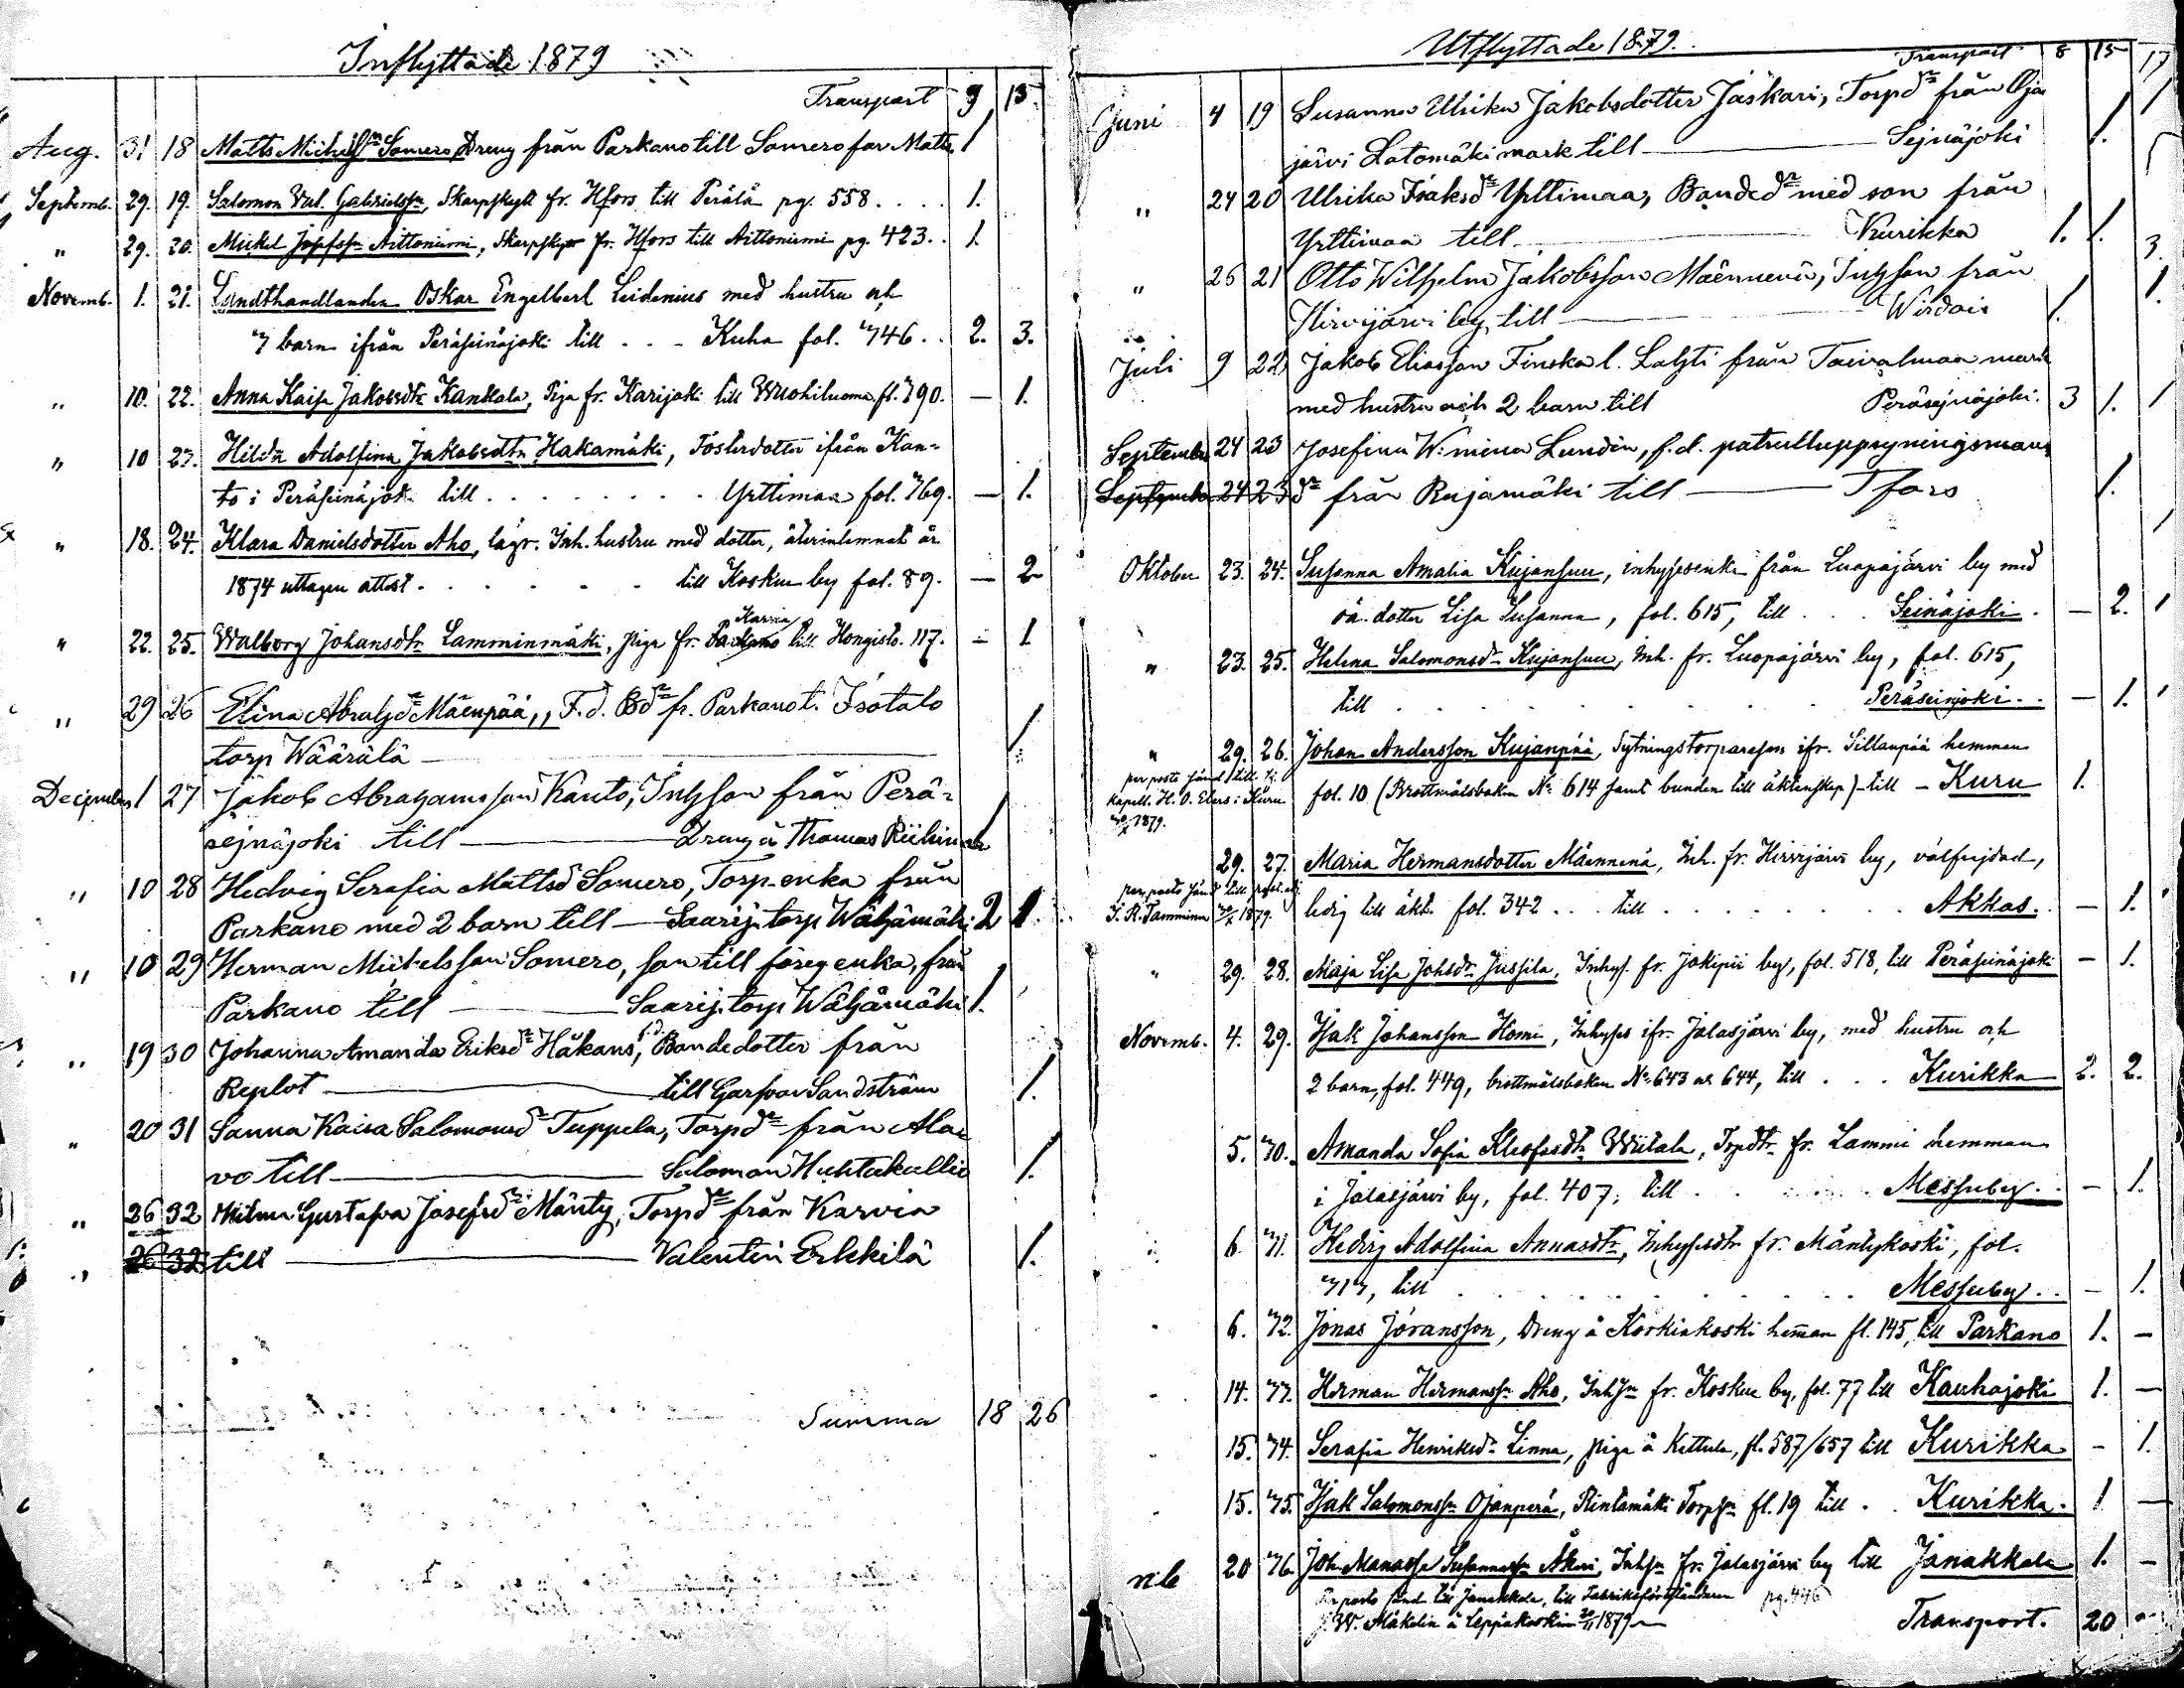 Inflyttade 1879
Transport 9 13
Aug. 31 18 Matts Michelsn Somero Dreng från Parkano till Somero far Matts 1
Septemb. 29. 19. Salomon Val. Gabrielssn, Skarpskytt fr. Hfors till Perälä pg. 558 . . . . 1.
" 29. 20. Mickel Josefssn Aittoniemi, Skarpskytt fr. Hfors till Aittoniemi pg. 423. . 1.
Novemb. 1. 21. Landthandlanden Oskar Engelbert Leidenius med hustru och
7 barn ifrån Peräseinäjoki till . . - Kuha fol. 746. . 2. 3.
" 10. 22. Anna Kaisa Jakobsdtr Kankala, Piga fr. Karijoki till Wuohiluoma fl. 790. — 1.
" 10 23. Hilda Adolfina Jakobsdtr Hakamäki, Fosterdotter ifrån Kan-
to i Peräseinäjok. till . . . . . . . . Yrttimaa fol. 769. — 1.
" 18. 24. Klara Danielsdotter Aho, lägr. Inh. hustru med dotter, återinlemnat år
1874 uttagen attest . . . . . . till Koskue by fol. 89. — 2
" 22. 25. Walborg Johansdtr Lamminmäki, piga fr. Parkano Karvia till Hongisto. 117. — 1
" 29 26 Elina Abrahsdr Mäenpää,, F.d. Bdr fr. Parkano t. Isotalo
torp Wäärälä — 1.
December 1 27 Jakob Abrahamsson Kanto, Inhson från Perä-
sejnäjoki till — Dreng å Thomas Riihimäk 1
" 10 28 Hedvig Serafia Mattsd Somero, Torp-enka från
Parkano med 2 barn till — Saarij. torp Wäljämäki 2 1.
" 10 29 Herman Mikelsson Somero, son till föreg enka, från
Parkano till — Saarij. torp Wäljämäki 1.
" 19 30 Johanna Amanda Eriksdr Håkans, f.d. Bondedotter från
Replot — till Garfvar Sandström 1.
" 20 31 Sanna Kaisa Salomonsdr Tuppela, Torpdr från Ala-
vo till — Salomon Huhtakallio 1.
" 26 32 Wilma Gustafva Josefsdr Mänty, Torpdr från Karvia
" 26 32 till — Valentin Erkkilä 1.
Summa 18 26
Utflyttade 1879.
Transport 8 15 17
Juni 4 19 Susanna Ulrika Jakobsdotter Jäskari, Torpdr från Oja
järvi Latomäki mark till — Sejnäjoki 1.
" 24 20 Ulrika Isaksdr Yrttimaa, Bondedr med son från
Yrttimaa till — Kurikka 1. 1. 3.
" 25 21 Otto Wilhelm Jakobsson Mäennenä, Inhson från
Hirvijärvi by till — Wirdois 1. 1.
Juli 9 22 Jakob Eliasson Finska l. Lahti från Taivalmaa mark
med hustru och 2 barn till Peräsejnäjoki. 3 1. 1
September 24 23 Josefina W:mina Lundin, f.d. patrulluppsyningsmans
September 24 23 dr från Rujamäki till — Tfors 1.
Oktober 23. 24. Susanna Amalia Kujansuu, inhysesenka från Luopajärvi by med
oä. dotter Lisa Susanna, fol. 615, till . . . Seinäjoki. — 2. 1
" 23. 25. Helena Salomonsdr Kujansuu, Inh. fr. Luopajärvi by, fol. 615,
till . . . . . . . . . . Peräseinjoki. . — 1. 1
" 29. 26. Johan Andersson Kujanpää, Sytningstorpareson ifr. Sillanpää hemman
per posto sänd till tj.
kapell. H. O. Ebers i Kuru
20/X 1879.
fol. 10 (Brottmålsboken No 614 samt bunden till äktenskap) - till - Kuru 1.
29. 27. Maria Hermansdotter Mäennenä, Inh. fr. Hirvijärvi by, välfrejdad,
per posto sänd till past. adj.
J. R. Tamminen 30/X 1879.
ledig till äkt. fol. 342 . . . till . . . . . . . Akkas. . — 1. 1
" 29. 28. Maja Lisa Johsdr Jussila, Inhys. fr. Jokipii by, fol. 518, till Peräseinäjoki — 1.
Novemb. 4. 29. Isak Johansson Homi, Inhyses ifr. Jalasjärvi by, med hustru och
2 barn, fol. 449, brottmålsboken No 643 och 644, till . . . Kurikka 2. 2.
5. 30. Amanda Sofia Kleofasdtr Wiitala, Torpdtr fr. Lammi hemman
i Jalasjärvi by, fol. 407, till . . . . . Messuby. . — 1.
6. 31. Hedvig Adolfina Annasdtr, Inhysesdtr fr. Mäntykoski, fol.
717, till . . . . . . . . . . Messuby. . — 1.
6. 32. Jonas Jöransson, Dreng å Korkiakoski heman fl. 145, till Parkano 1. —
14. 33. Herman Hermanssn Aho, Inhsn fr. Koskue by, fol. 77 till Kauhajoki 1. —
15. 34. Serafia Henriksdr Linna, piga å Kettula, fl. 587/657 till Kurikka — 1.
15. 35. Isak Salomonssn Ojanperä, Rintamäki Torpsn fl. 19 till . . Kurikka. 1 —
20 36. Joh. Manasse Susannassn Åkeri, Inhsn fr. Jalasjärvi by till Janakkala 1. —
Per posto sänd till Janakkala, till Fabriksföreståndaren pg. 446
J. W. Mäkelin å Leppäkoski 20/11 1879
Transport. 20